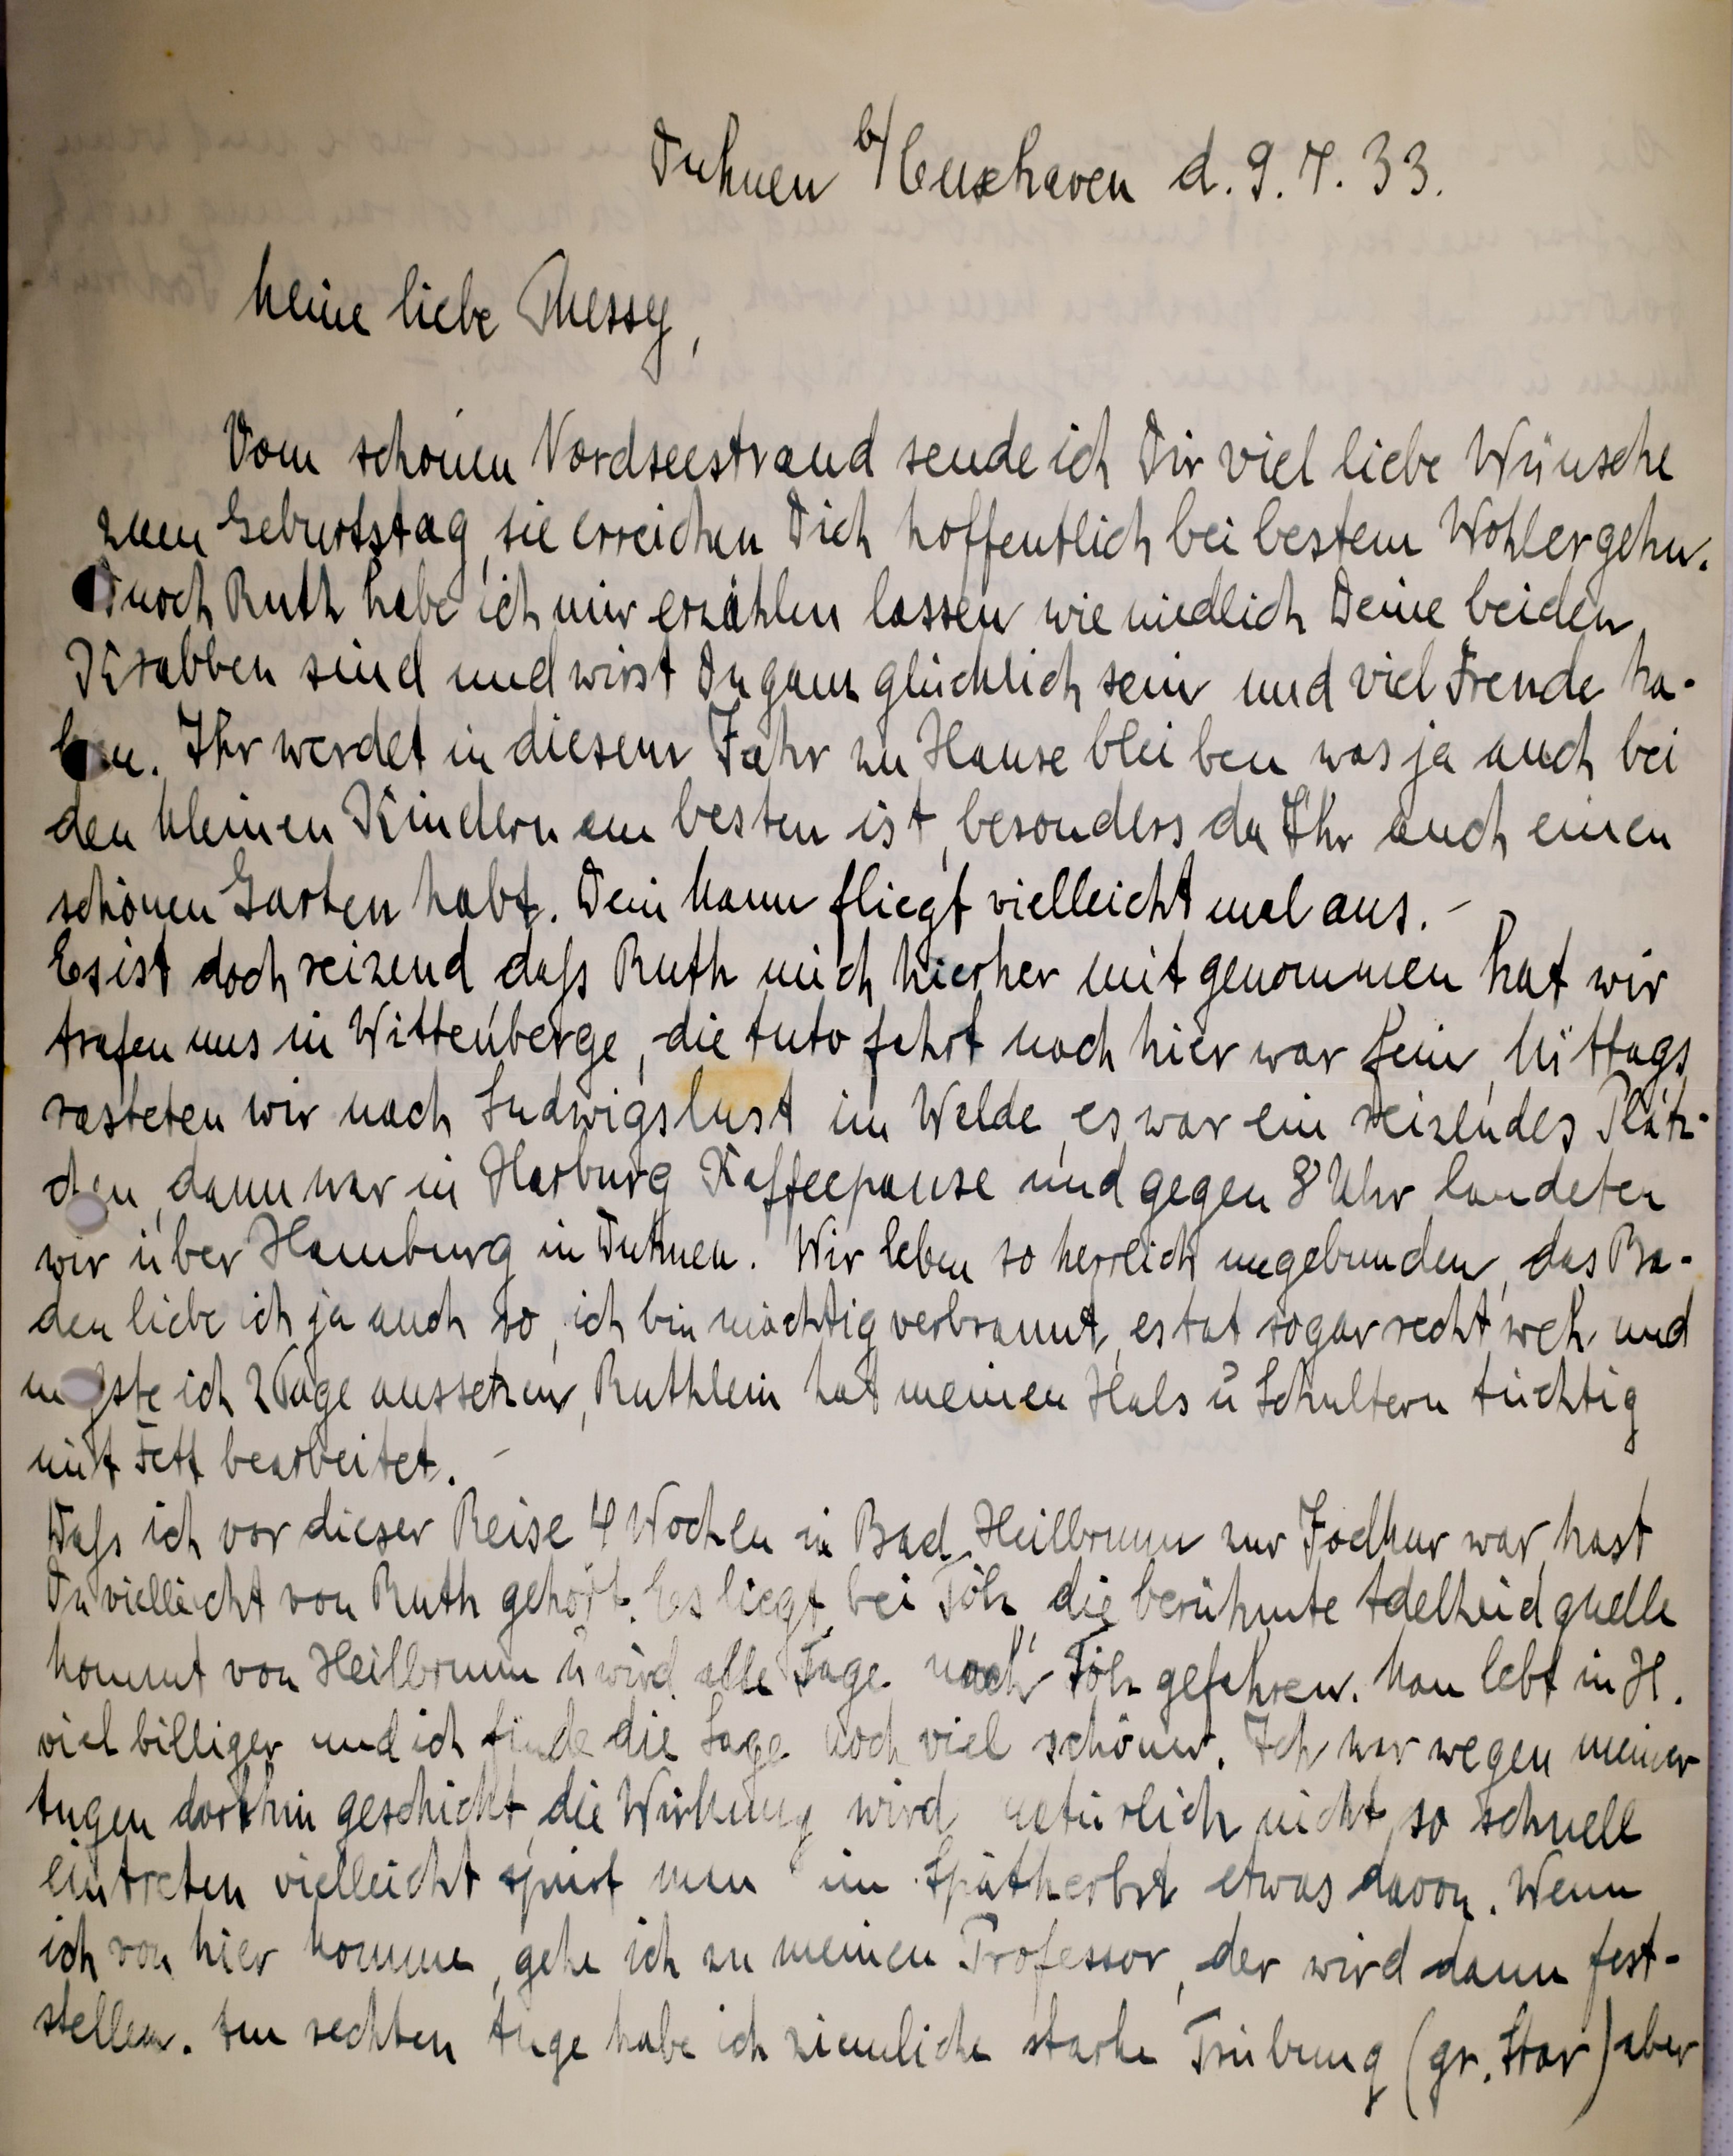 Duhnen b/Cuxhaven d. 9. 7. 33.
Meine liebe Thessy,
Vom schönen Nordseestrand sende ich Dir viel liebe Wünsche
zum Geburtstag, sie erreichen Dich hoffentlich bei bestem Wohlergehn.
Durch Ruth habe ich mir erzählen lassen wie niedlich Deine beiden
Krabben sind und wirst Du ganz glücklich sein und viel Freude ha-
ben. Ihr werdet in diesem Jahr zu Hause bleiben was ja auch bei
den kleinen Kindern am besten ist, besonders da Ihr auch einen
schönen Garten habt. Dein Mann fliegt vielleicht mal aus. –
Es ist doch reizend daß Ruth mich hierher mitgenommen hat wir
trafen uns in Wittenberge, die Autofahrt nach hier war fein, Mittags
rasteten wir nach Ludwigslust im Walde, es war ein reizendes Plätz-
chen, dann war in Harburg Kaffeepause und gegen 8 Uhr landeten
wir über Hamburg in Duhnen. Wir leben so herrlich ungebunden, das Ba-
den liebe ich ja auch so, ich bin mächtig verbrannt, es tat sogar recht weh und
mußte ich 2 Tage aussetzen, Ruthlein hat meinen Hals u Schultern tüchtig
mit Fett bearbeitet. –
Daß ich vor dieser Reise 4 Wochen in Bad Heilbrunn zur Jodkur war, hast
Du vielleicht von Ruth gehört. Es liegt bei Tölz, die berühmte Adelheidquelle
kommt von Heilbrunn u wird alle Tage nach Tölz gefahren. Man lebt in H.
viel billiger und ich finde die Lage noch viel schöner. Ich war wegen meiner
Augen dorthin geschickt, die Wirkung wird natürlich nicht so schnell
eintreten vielleicht spürt man im Spätherbst etwas davon. Wenn
ich von hier komme, gehe ich zu meinen Professor, der wird dann fest-
stellen. Am rechten Auge habe ich ziemliche starke Trübung (gr. Star) aber